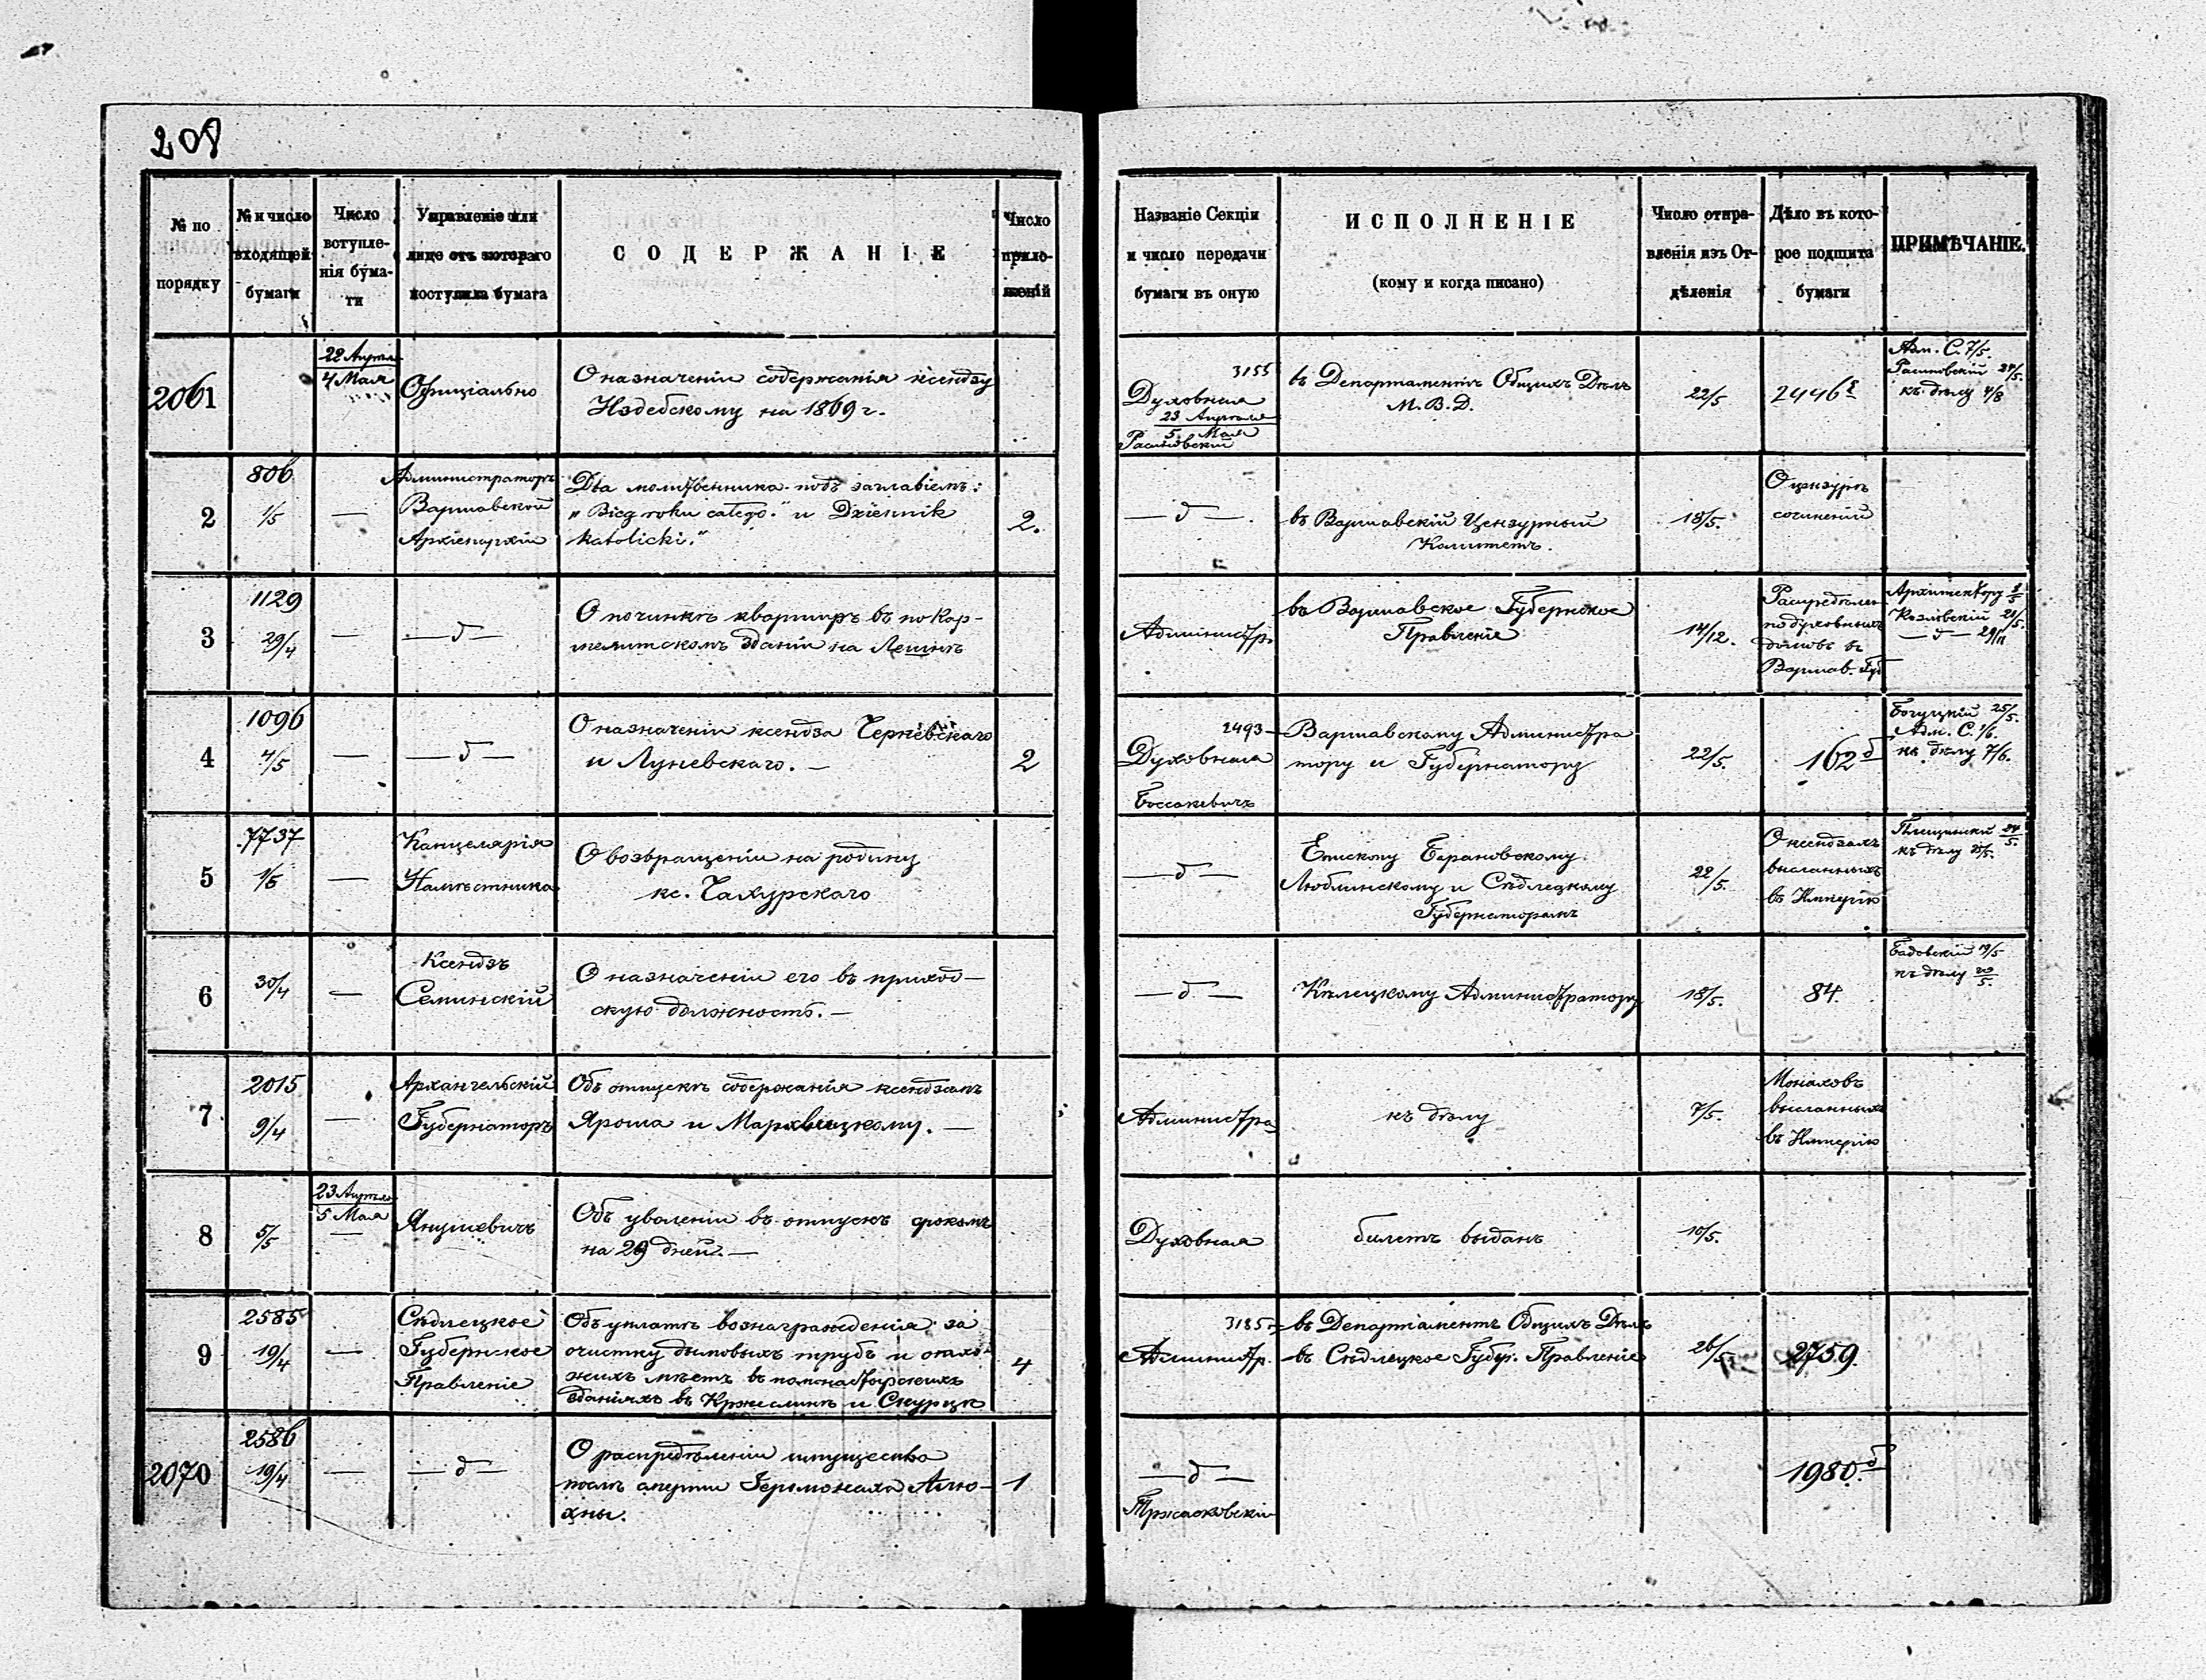 208
№ по порядку
№ и число входящей бумаги
Число вступленія бумаги
Управленіе или лице отъ котораго поступила бумага
СОДЕРЖАНІЕ
Число приложеній
Названіе Секціи и число передачи бумаги въ оную
ИСПОЛНЕНІЕ
(кому и когда писано)
Число отправленія изъ Отдѣленія
Дѣло въ которое подшита бумаги
ПРИМѢЧАНІЕ.
2061
22 Апрѣля
4 Мая
Офиціально
О назначеніи содержанія ксендзу
на 1869 г.
3155
Духовная
23 Апрѣля
5 Мая
въ Департаментъ Общихъ Дѣлъ
М. В. Д.
22/5
2446
Адм. С. 7/5.
къ дѣлу 4/8
2
806
1/5
—
Администраторъ
Варшавской
Архіепархіи
Два молитвенника подъ заглавіемъ:
„Bieg roku całego." и Dziennik
katolicki."
2.
— д —.
въ Варшавскій Цензурный
Комитетъ.
18/5.
О цензурѣ
сочиненій
3
1129
29/4
—
— д —
О починкѣ квартиръ въ по Кар-
мелитскомъ зданіи на Лешнѣ
Администр.
въ Варшавское Губернское
Правленіе
14/12.
по духовныхъ
домовъ въ
Варшав. Губ
Архитектору
Козловскій 21/5.
— д — 29/11
4
1096
4/5
—
— д —
О назначеніи ксендза
и Луневскаго. —
2
2493
Духовная
Варшавскому Администра
тору и Губернатору
22/5.
162 б
25/5.
Адм. С. 1/6.
къ дѣлу 7/6.
5
7737
1/5
—
Канцелярія
Намѣстника
О возвращеніи на родину
кс. Чахурскаго
— д —
Епископу Барановскому
Люблинскому и Сѣдлецкому
Губернаторамъ
22/5.
О ксендзахъ
высланныхъ
въ Имперію
къ дѣлу
6
30/4
—
Ксендзъ
Семинскій
О назначеніи его въ приход-
скую должность. —
— д —
Кѣлецкому Администратору
18/5.
84.
Бадовскій 19/5
къ дѣлу 20/5.
7
2015
9/4
—
Архангельскій
Губернаторъ
Объ отпускѣ содержанія ксендзамъ
Яроша и
Администра
къ дѣлу
7/5.
Монаховъ
высланныхъ
въ Имперію
8
5/5
23 Апрѣля
5 Мая
—
Янушевичъ
Объ уволеніи въ отпускъ срокомъ
на 29 дней. —
Духовная
билетъ выданъ
10/5.
9
2585
19/4
—
Сѣдлецкое
Губернское
Правленіе
Объ уплатѣ вознагражденія за
очистку дымовыхъ трубъ и отхо-
жихъ мѣстъ въ помонастырскихъ
зданіяхъ въ Кржеслинѣ и Скурцѣ
4
3185
Администр.
въ Департаментъ Общихъ Дѣлъ
въ Сѣдлецкое Губер. Правленіе
26/5.
2759.
2070
2586
19/4
—
— д —
О распредѣленіи имущества
послѣ смерти Іеромонаха Алю-
хны.
1
— д —
1980. б